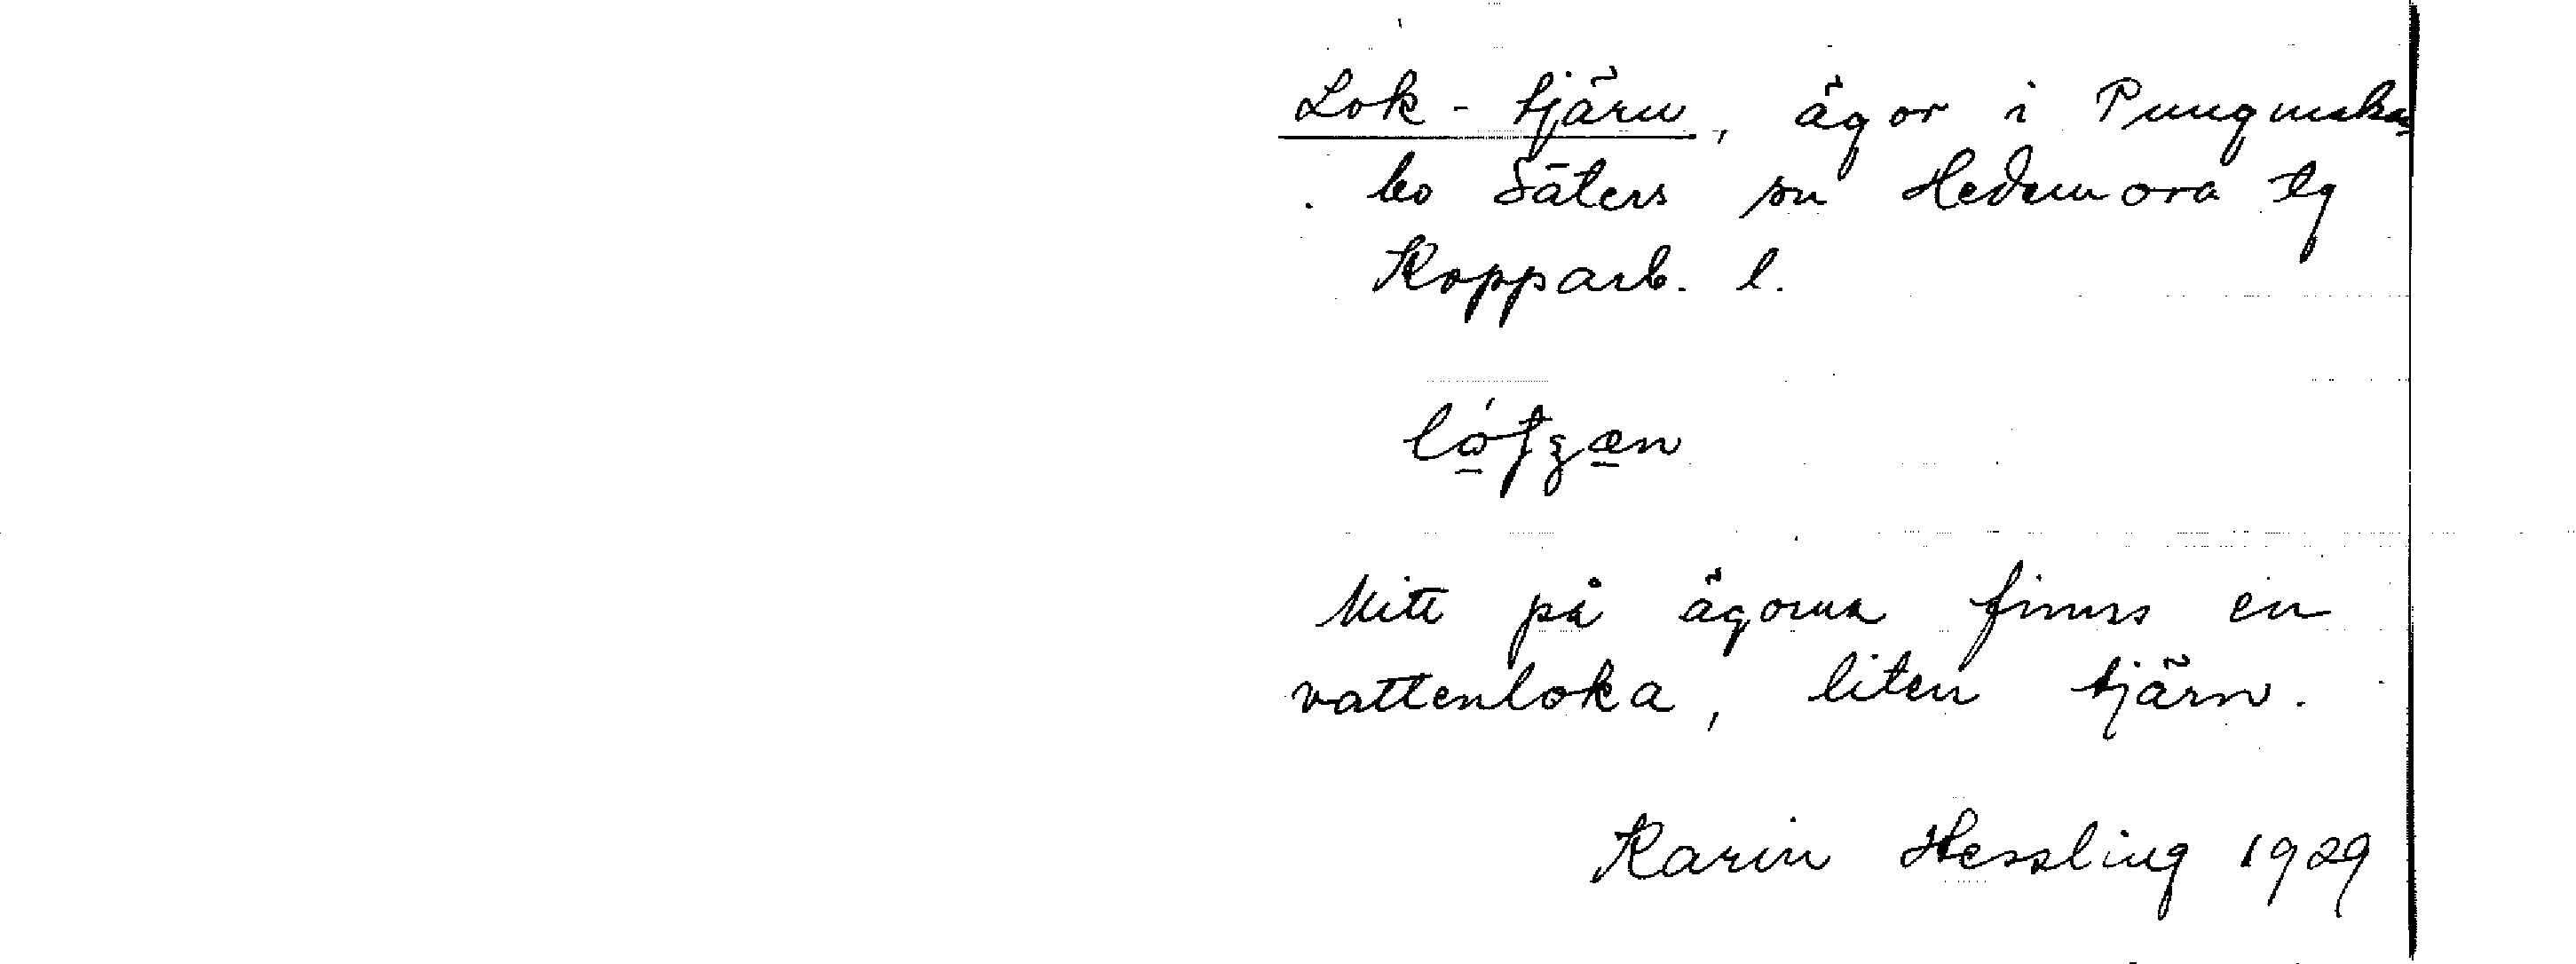 Lok-tjärn, ägor i Pungmska-
bo Säters sn Hedemora tg
Kopparb. l.
Mitt på ägorna finns en
vattenloka, liten tjärn.
Karin Hessling 1929